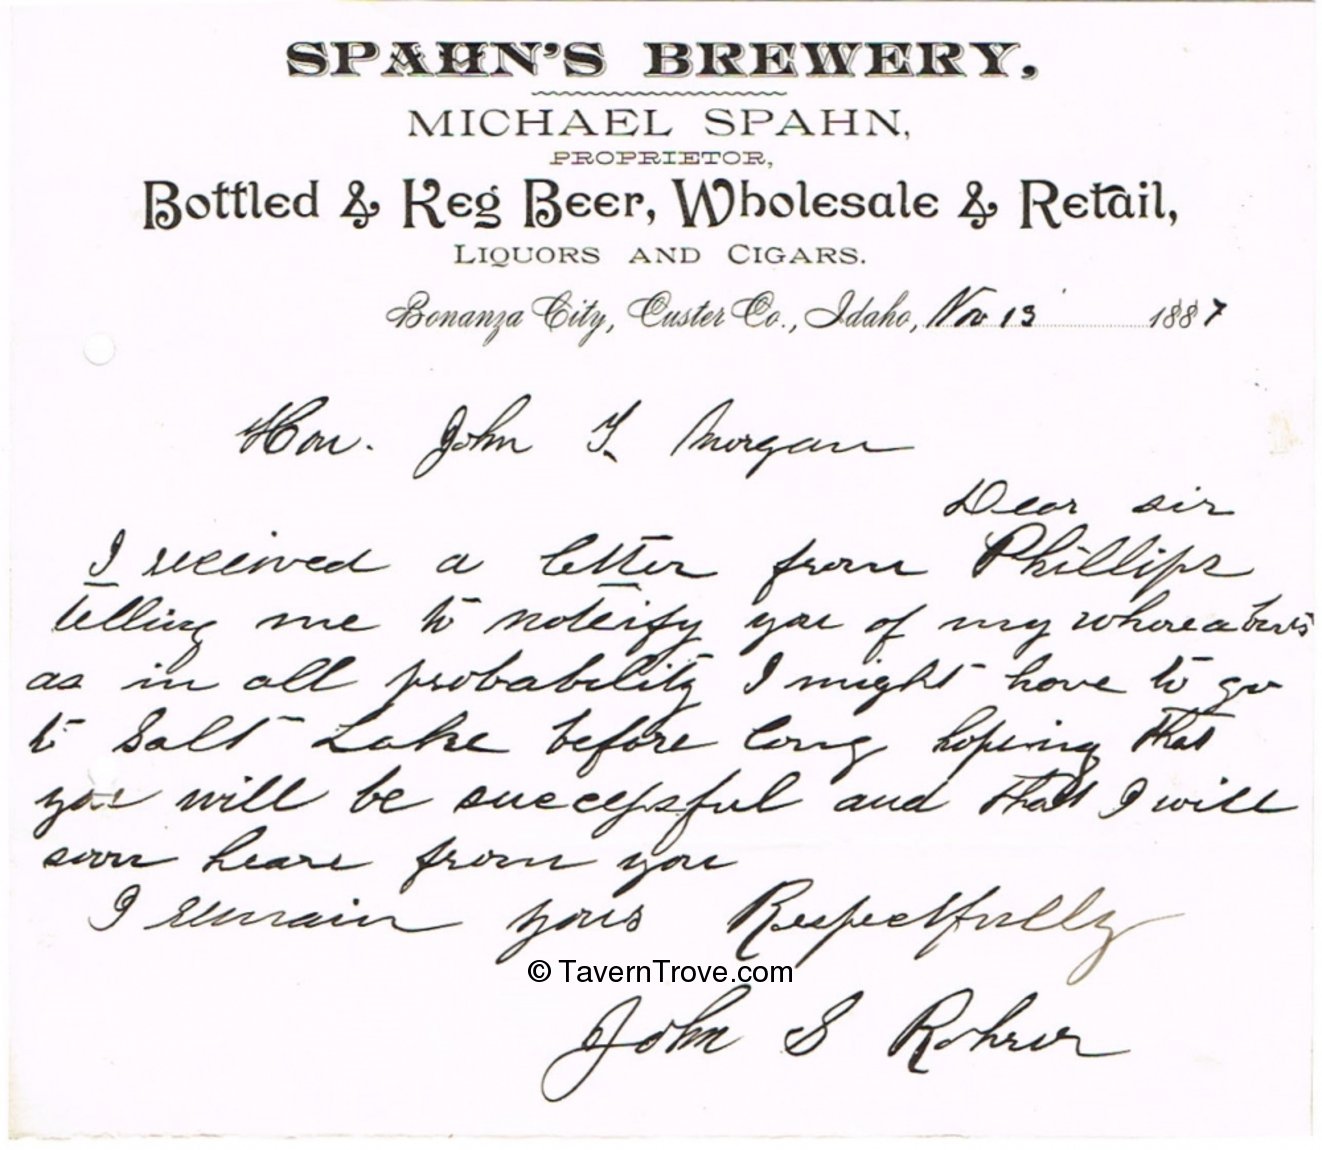 SPAHN'S BREWERY.
MICHAEL SPAHN,
PROPRIETOR,
Bottled & Keg Beer, Wholesale & Retail,
LIQUORS AND CIGARS.
Bonanza City, Custer Co., Idaho, Nov 13 1887
Hon. John T. Morgan
Dear sir
I received a letter from Phillips
telling me to noteify you of my whereabouts
as in all probability I might have to go
to Salt Lake before long hoping that
you will be successful and that I will
soon heare from you
I remain yours Respectfully
© TavernTrove.com
John S Rohrer